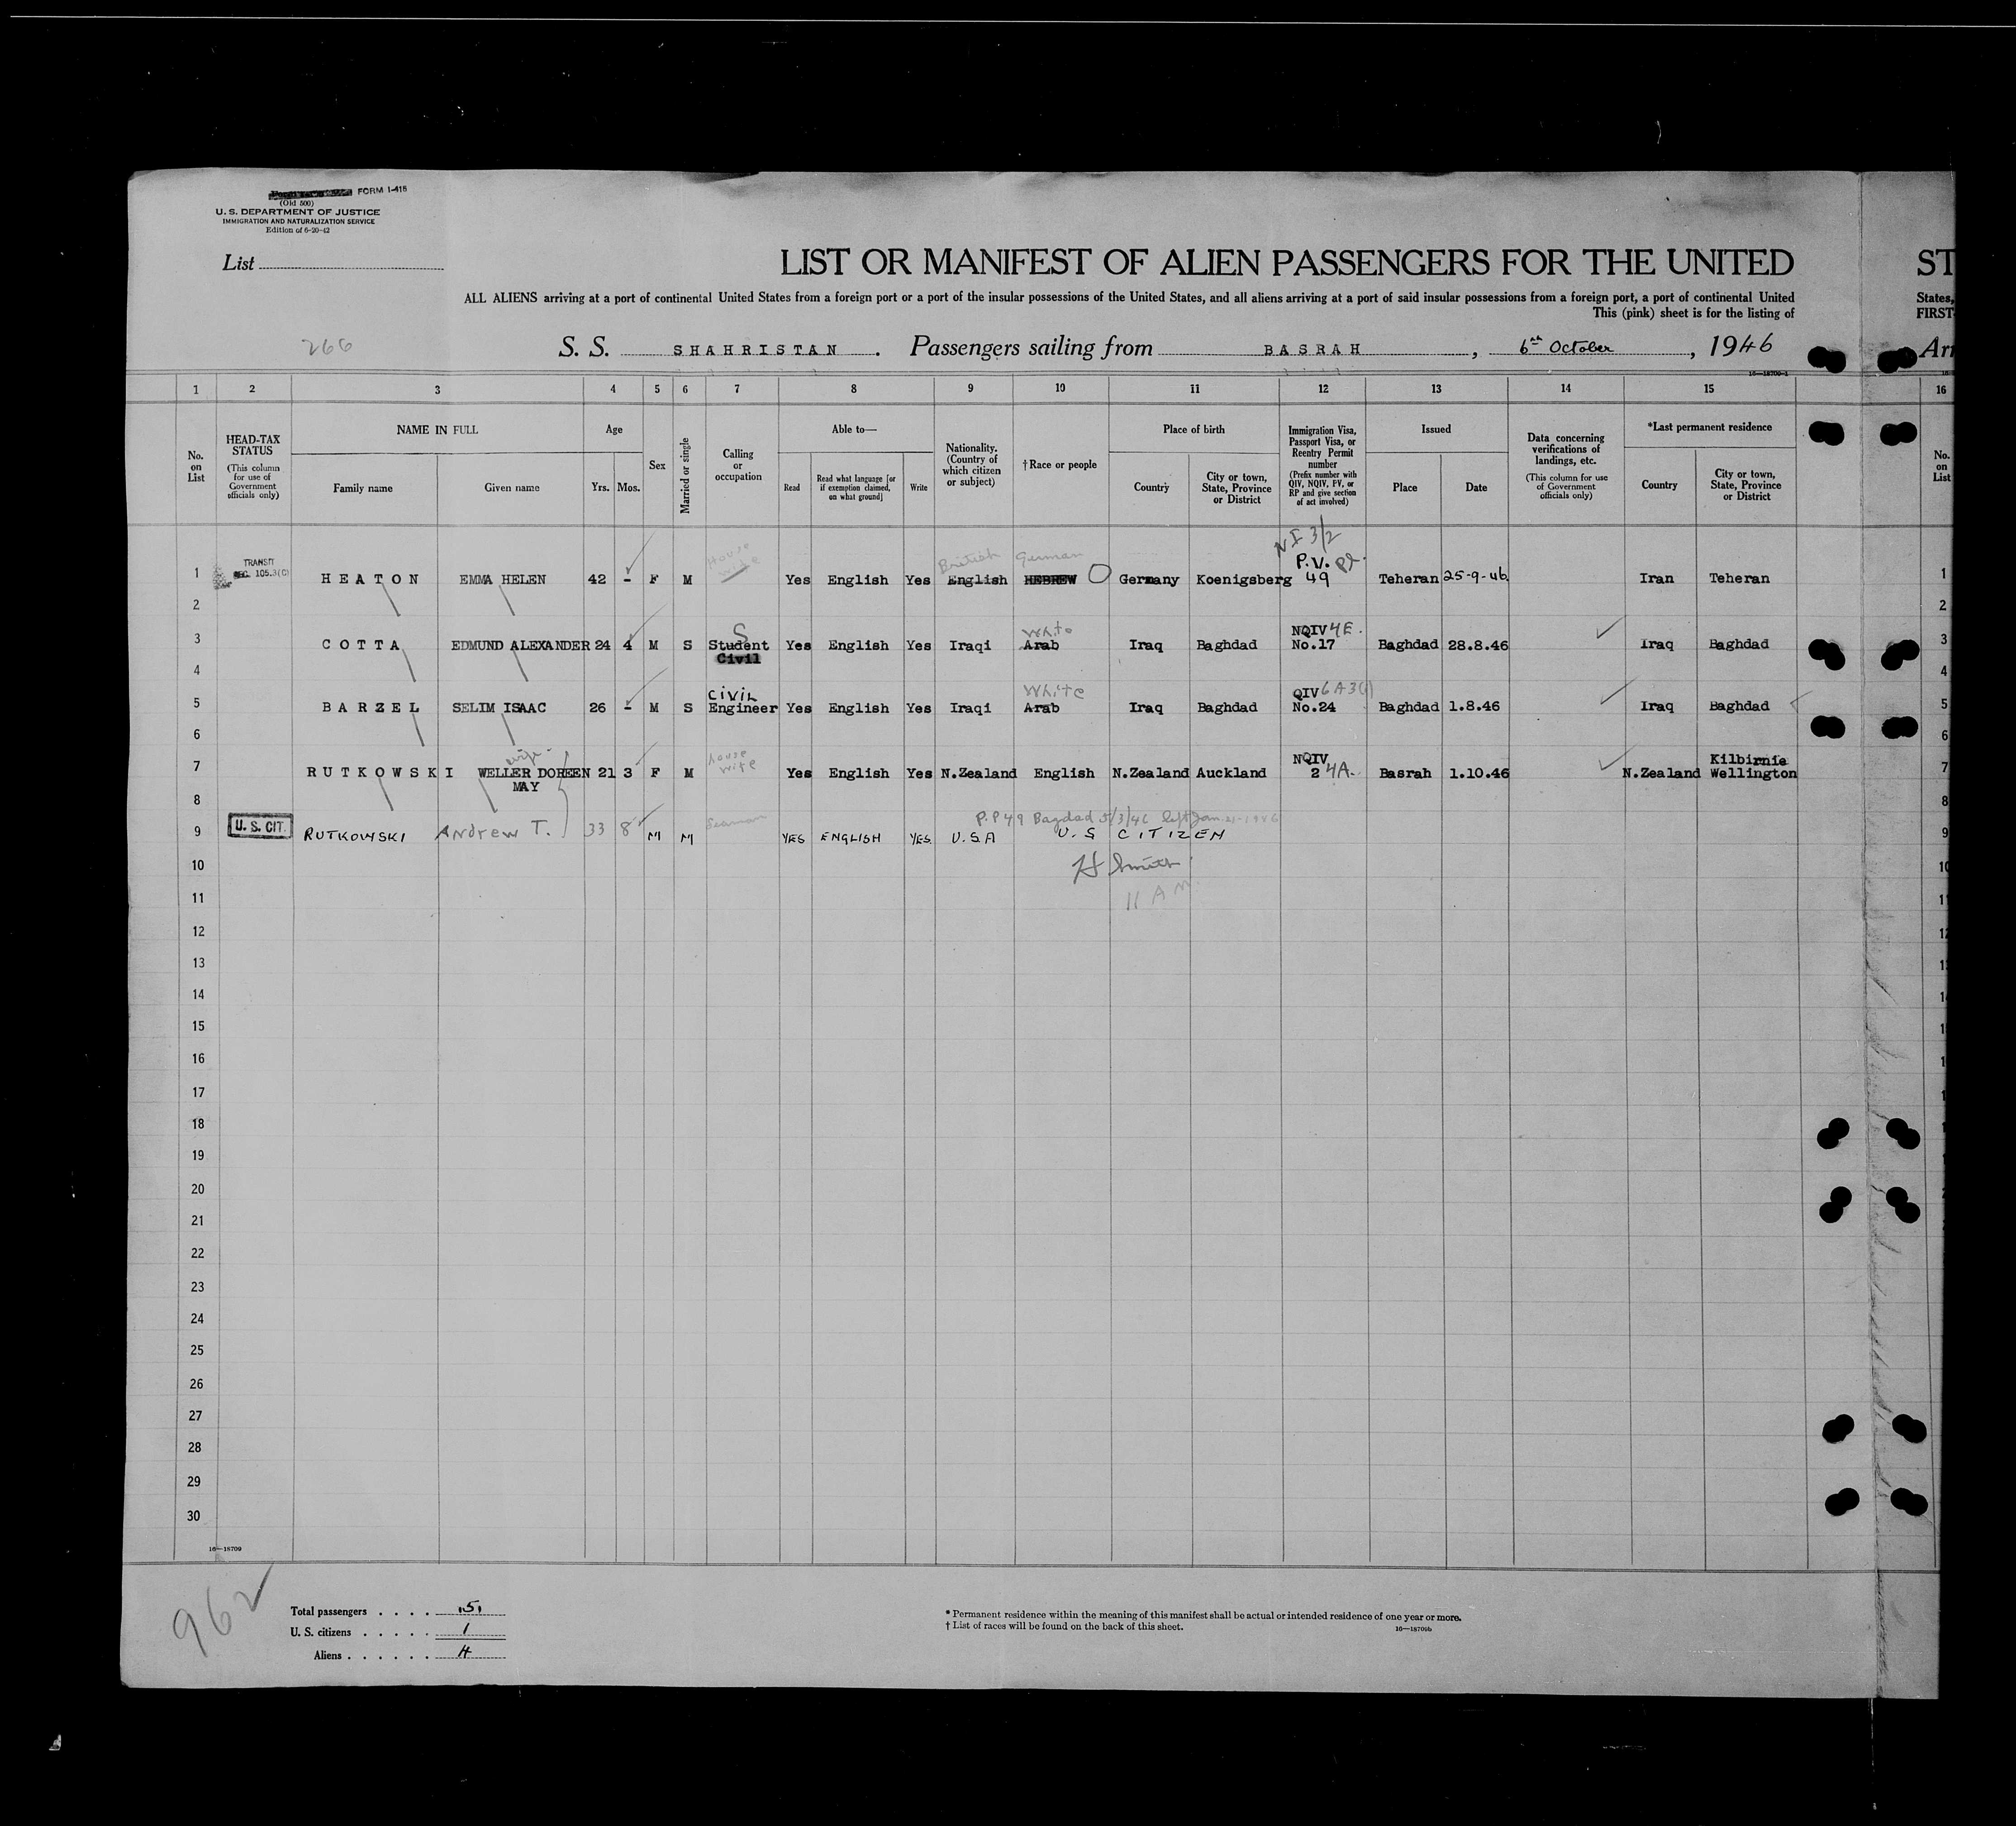 FORM I-415
(Old 500)
U. S. DEPARTMENT OF JUSTICE
IMMIGRATION AND NATURALIZATION SERVICE
Edition of 6-20-42
List
LIST OR MANIFEST OF ALIEN PASSENGERS FOR THE UNITED
ST
ALL ALIENS arriving at a port of continental United States from a foreign port or a port of the insular possessions of the United States, and all aliens arriving at a port of said insular possessions from a foreign port, a port of continental United
States,
This (pink) sheet is for the listing of
FIRST
266
S. S. SHAHRISTAN . Passengers sailing from BASRAH , 6th October , 1946
Arr
16—18709-1
1 2 3 4 5 6 7 8 9 10 11 12 13 14 15 16
No. on List
HEAD-TAX STATUS
(This column for use of Government officials only)
NAME IN FULL
Family name
Given name
Age
Yrs.
Mos.
Sex
Married or single
Calling or occupation
Able to—
Read
Read what language [or if exemption claimed, on what ground]
Write
Nationality. (Country of which citizen or subject)
†Race or people
Place of birth
Country
City or town, State, Province or District
Immigration Visa, Passport Visa, or Reentry Permit number
(Prefix number with QIV, NQIV, PV, or RP and give section of act involved)
Issued
Place
Date
Data concerning verifications of landings, etc.
(This column for use of Government officials only)
*Last permanent residence
Country
City or town, State, Province or District
No. on List
N I 3/2
TRANSIT House wife British German P.V.
SEC. 105.3(C)
1 HEATON EMMA HELEN 42 - F M Yes English Yes English HEBREW Germany Koenigsberg 49 Teheran 25-9-46 Iran Teheran 1
2 2
S White NQIV 4E.
3 COTTA EDMUND ALEXANDER 24 4 M S Student Yes English Yes Iraqi Arab Iraq Baghdad No.17 Baghdad 28.8.46 Iraq Baghdad 3
Civil
4 4
Civil White QIV 6A3(1)
5 BARZEL SELIM ISAAC 26 - M S Engineer Yes English Yes Iraqi Arab Iraq Baghdad No.24 Baghdad 1.8.46 Iraq Baghdad 5
6 6
wife house wife NQIV Kilbirnie
7 RUTKOWSKI WELLER DOREEN 21 3 F M Yes English Yes N.Zealand English N.Zealand Auckland 2 4A. Basrah 1.10.46 N.Zealand Wellington 7
MAY
8 8
U. S. CIT. Seaman P.P 49 Bagdad 5/3/46 left Jan
9 RUTKOWSKI Andrew T. 33 8 M M YES ENGLISH YES. U.S.A U.S CITIZEN 9
10 H Smith 10
11 11 A M.
12
13
14
15
16
17
18
19
20
21
22
23
24
25
26
27
28
29
30
16—18709
962
Total passengers . . . . 5
U. S. citizens . . . . . 1
Aliens . . . . . . 4
* Permanent residence within the meaning of this manifest shall be actual or intended residence of one year or more.
† List of races will be found on the back of this sheet.
16—18709b